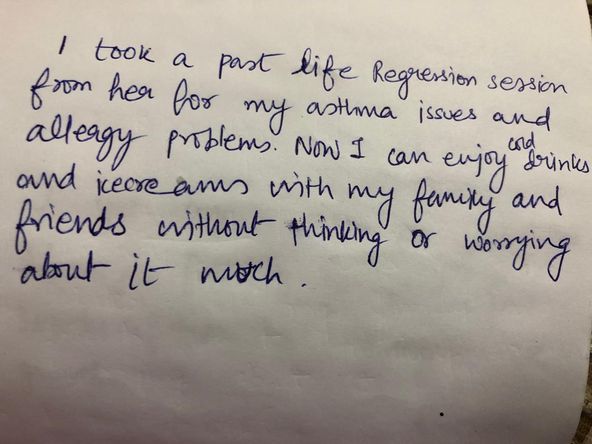 I took a past life Regression session
from her for my asthma issues and
allergy problems. Now I can enjoy cold drinks
and icecreams with my family and
friends without thinking or worrying
about it much.